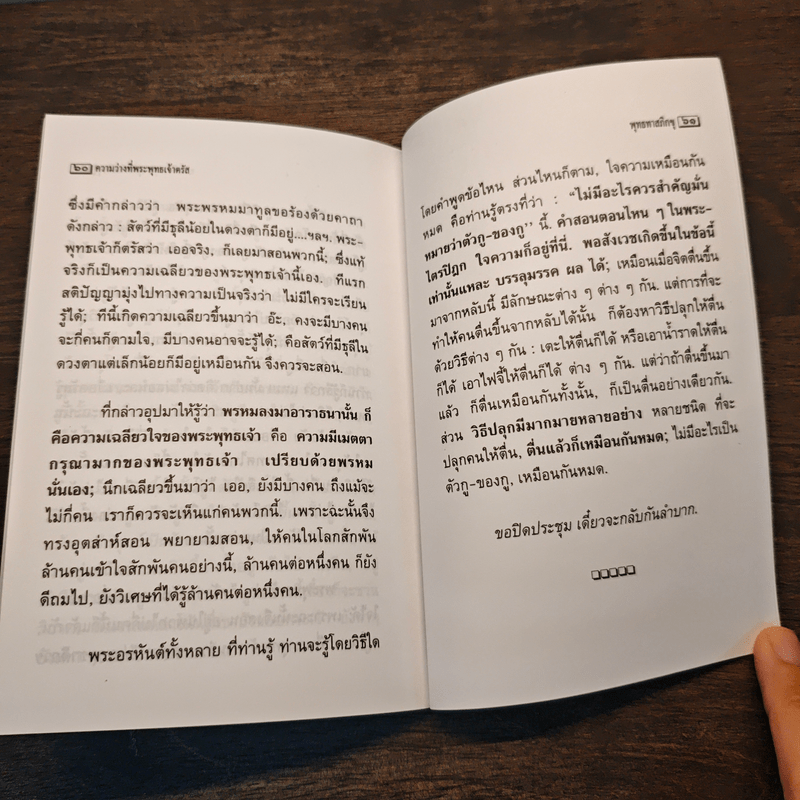 ๖๐ ความว่างที่พระพุทธเจ้าตรัส
ซึ่งมีคำกล่าวว่า พระพรหมมาทูลขอร้องด้วยคาถา
ดังกล่าว : สัตว์ที่มีธุลีน้อยในดวงตาก็มีอยู่....ฯลฯ. พระ-
พุทธเจ้าก็ตรัสว่า เออจริง, ก็เลยมาสอนพวกนี้; ซึ่งแท้
จริงก็เป็นความเฉลียวของพระพุทธเจ้านี้เอง. ทีแรก
สติปัญญามุ่งไปทางความเป็นจริงว่า ไม่มีใครจะเรียน
รู้ได้; ทีนี้เกิดความเฉลียวขึ้นมาว่า อ๊ะ, คงจะมีบางคน
จะกี่คนก็ตามใจ, มีบางคนอาจจะรู้ได้; คือสัตว์ที่มีธุลีใน
ดวงตาแต่เล็กน้อยก็มีอยู่เหมือนกัน จึงควรจะสอน.
ที่กล่าวอุปมาให้รู้ว่า พรหมลงมาอาราธนานั้น ก็
คือความเฉลียวใจของพระพุทธเจ้า คือ ความมีเมตตา
กรุณามากของพระพุทธเจ้า เปรียบด้วยพรหม
นั่นเอง; นึกเฉลียวขึ้นมาว่า เออ, ยังมีบางคน ถึงแม้จะ
ไม่กี่คน เราก็ควรจะเห็นแก่คนพวกนี้. เพราะฉะนั้นจึง
ทรงอุตส่าห์สอน พยายามสอน, ให้คนในโลกสักพัน
ล้านคนเข้าใจสักพันคนอย่างนี้, ล้านคนต่อหนึ่งคน ก็ยัง
ดีถมไป, ยังวิเศษที่ได้รู้ล้านคนต่อหนึ่งคน.
พระอรหันต์ทั้งหลาย ที่ท่านรู้ ท่านจะรู้โดยวิธีใด
พุทธทาสภิกขุ ๖๑
โดยคำพูดข้อไหน ส่วนไหนก็ตาม, ใจความเหมือนกัน
หมด คือท่านรู้ตรงที่ว่า : “ไม่มีอะไรควรสำคัญมั่น
หมายว่าตัวกู-ของกู” นี้. คำสอนตอนไหน ๆ ในพระ-
ไตรปิฎก ใจความก็อยู่ที่นี่. พอสังเวชเกิดขึ้นในข้อนี้
เท่านั้นแหละ บรรลุมรรค ผล ได้; เหมือนเมื่อจิตตื่นขึ้น
มาจากหลับนี้ มีลักษณะต่าง ๆ ต่าง ๆ กัน. แต่การที่จะ
ทำให้คนตื่นขึ้นจากหลับได้นั้น ก็ต้องหาวิธีปลุกให้ตื่น
ด้วยวิธีต่าง ๆ กัน : เตะให้ตื่นก็ได้ หรือเอาน้ำราดให้ตื่น
ก็ได้ เอาไฟจี้ให้ตื่นก็ได้ ต่าง ๆ กัน. แต่ว่าถ้าตื่นขึ้นมา
แล้ว ก็ตื่นเหมือนกันทั้งนั้น, ก็เป็นตื่นอย่างเดียวกัน.
ส่วน วิธีปลุกมีมากมายหลายอย่าง หลายชนิด ที่จะ
ปลุกคนให้ตื่น, ตื่นแล้วก็เหมือนกันหมด; ไม่มีอะไรเป็น
ตัวกู-ของกู, เหมือนกันหมด.
ขอปิดประชุม เดี๋ยวจะกลับกันลำบาก.